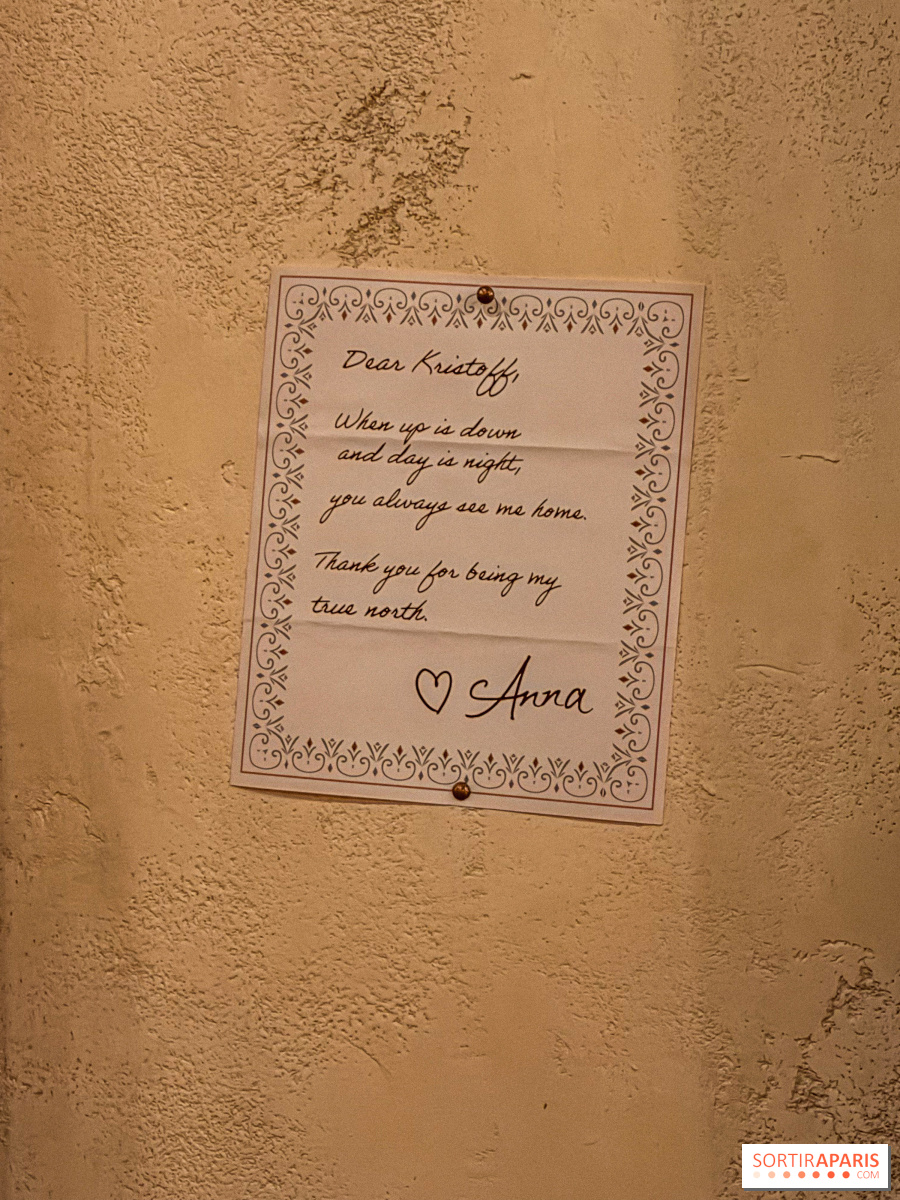 Dear Kristoff,
When up is down
and day is night,
you always see me home.
Thank you for being my
true north.
♡ Anna
SORTIRAPARIS
.COM